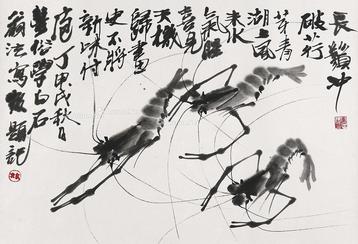 長鬚吹
破荇
芽青
湖上風
來水
氣腥
喜見
天機
歸畫
史不將
新味付
庖丁甲戌秋日
學白石
翁法寫並題記